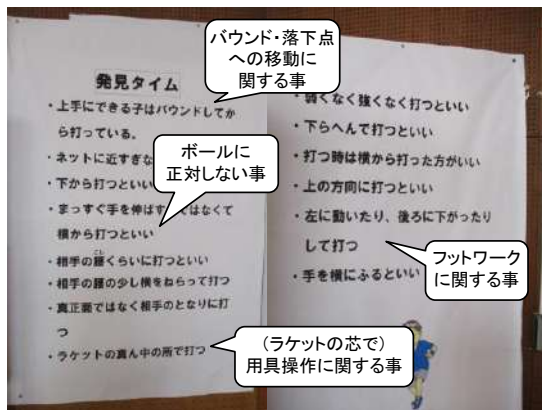 バウンド・落下点
への移動に
関する事
発見タイム
・上手にできる子はバウンドしてか
ら打っている。
・ネットに近すぎな
・下から打つといい
・まっすぐ手を伸ばす ではなくて
横から打つといい
・相手の腰くらいに打つといい
こし
・相手の腰の少し横をねらって打つ
・真正面ではなく相手のとなりに打
つ
・ラケットの真ん中の所で打つ
ボールに
正対しない事
(ラケットの芯で)
用具操作に関する事
・弱くなく強くなく打つといい
・下らへんで打つといい
・打つ時は横から打った方がいい
・上の方向に打つといい
・左に動いたり、後ろに下がったり
して打つ
・手を横にふるといい
フットワーク
に関する事